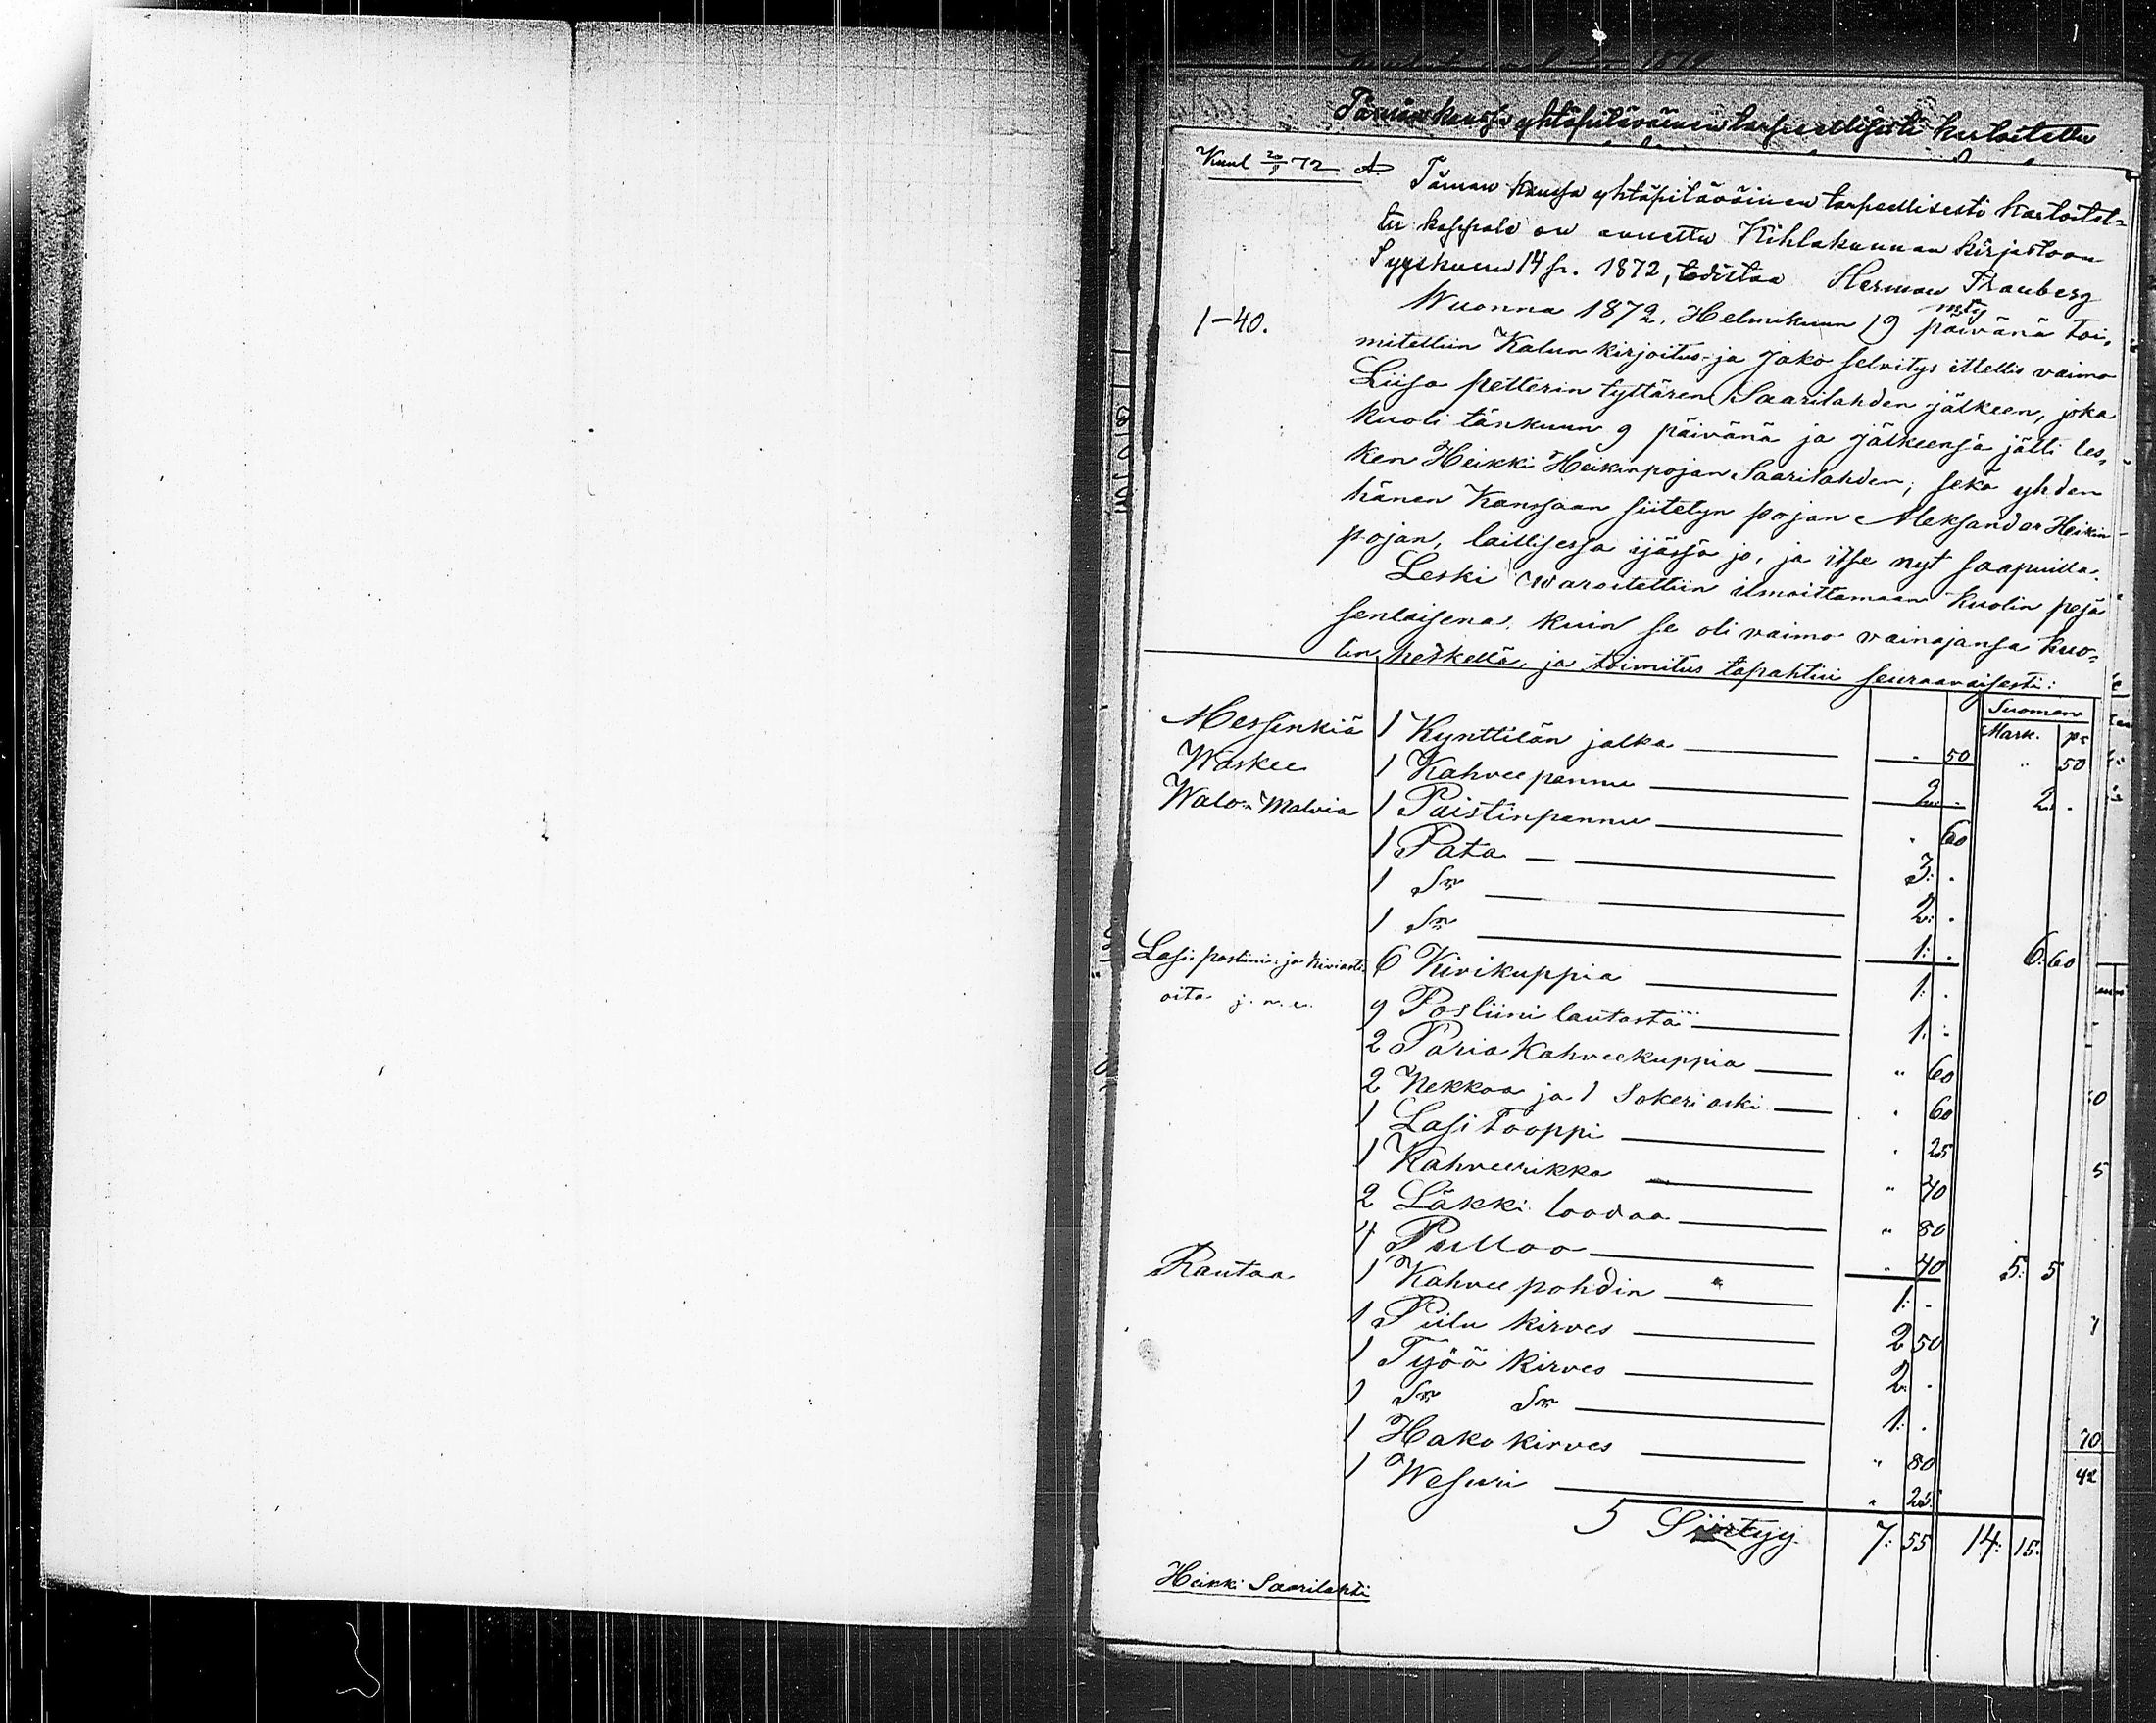 Tämän kanssa yhtäpitäväinen tarpeellisesti kartoitettu
Kuul 20/9 72 A
Tämän kanssa yhtäpitäväinen tarpeellisesti kartoitet-
tu kappale on annettu Kihlakunnan kirjastoon
Syyskuun 14 p. 1872, todistaa Herman Franberg
mtj
1-40.
Wuonna 1872, Helmikuun 19 päivänä toi,
mitettiin Kalun kirjoitus- ja Jako selvitys ittellis vaimo
Liisa petterin tyttären Saarilahden jälkeen, joka
kuoli tänkuun 9 päivänä ja jälkeensä jätti les,
ken Heikki Heikinpojan Saarilahden, sekä yhden
hänen kanssaan siitetyn pojan Aleksander Heikin
pojan, laillisessa ijässä jo, ja itse nyt saapuilla.
Leski waroitettiin ilmoittamaan kuolin pesä
senlaisena, kuin se oli vaimo vainajansa kuo-
lin hetkellä, ja toimitus tapahtui seuraavaisesti:
Suomen
Mark. pe
Messinkiä 1 Kynttilän jalka " 50 " 50
Waskee 1 Kahvee pannu 2. . 2. .
Walo-Malvia 1 Paistinpannu . 60
1 Pata 3: .
1 Sn 2: .
1 Sn 1: . 6: 60
Lasi- posliini- ja kiviasti- 6 Kivikuppia 1: .
oita j. n. e. 9 Posliini lautasta 1: .
2 Paria Kahveekuppia " 60
2 Nekkaa ja 1 Sokeri aski . 60
1 Lasi tooppi . 25
1 Kahveerikka " 40
2 Läkki laadaa " 80
4 Pulloo . 40 5: 5
Rautaa 1 Kahvee pohdin 1: .
1 Piilu kirves 2 50
1 Työö kirves 2. .
1 Sn Sn 1: .
1 Hako kirves " 80
1 Wesuri . 25
5 Siirtyy 7: 55 14: 15.
Heikki Saarilahti